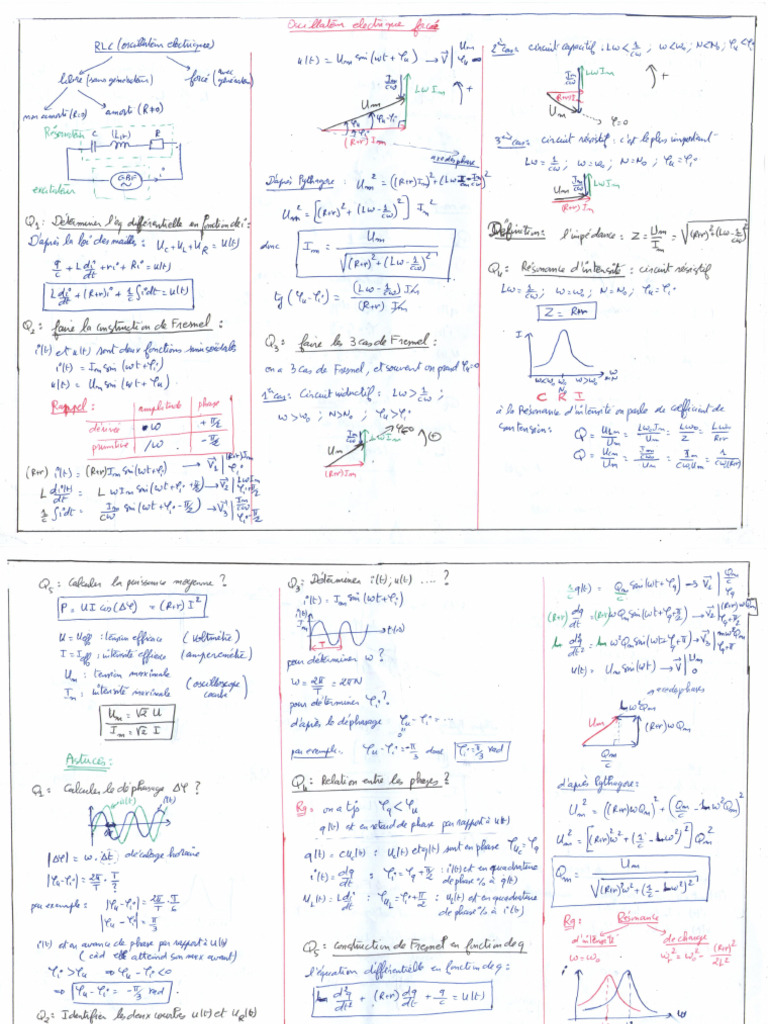 Oscillateur electrique forcé
RLC (oscillateur electrique)
libre (sans générateur)
forcé (avec générateur)
non amorti (R=0)
amorti (R≠0)
Résonateur
C (L,r) R
GBF
excitateur
Q1: Déterminer l'éq differentielle en fonction de i:
D'après la loi des mailles : Uc + UL + UR = u(t)
q/c + L di/dt + ri + Ri = u(t)
L di/dt + (R+r)i + 1/c ∫i dt = u(t)
Q2: faire la construction de Fresnel :
i(t) et u(t) sont deux fonctions sinusoidales
i(t) = Im sin(wt + φi)
u(t) = Um sin(wt + φu)
Rappel :
amplitude phase
dérivée •w + π/2
primitive /w - π/2
(R+r) i(t) = (R+r)Im sin(wt+φi) → V1 | (R+r)Im φi
L di(t)/dt = L w Im sin(wt+φi+π/2) → V2 | LwIm φi+π/2
1/c ∫i dt = Im/cw sin(wt+φi-π/2) → V3 | Im/cw φi-π/2
u(t) = Um sin(wt + φu) → V | Um φu
Im/cw
LwIm
+
Um
φu
φu-φi
φi
(R+r) Im
axe de phase
D'après Pythagore : Um² = ((R+r)Im)² + (LwIm - Im/cw)²
Um² = [(R+r)² + (Lw - 1/cw)²] Im²
donc Im = Um / √((R+r)² + (Lw - 1/cw)²)
tg(φu-φi) = (Lw - 1/cw) Im / (R+r) Im
Q3: faire les 3 cas de Fresnel :
on a 3 cas de Fresnel, et souvent on prend φi=0
1er cas : Circuit inductif : Lw > 1/cw ;
w > w0 ; N > N0 ; φu > φi
Im/cw
LwIm
Um
(R+r)Im
φ=0
+
2ème cas : circuit capacitif : Lw < 1/cw ; w < w0 ; N < N0 ; φu < φi
Im/cw
LwIm
(R+r)Im
Um
φ=0
+
3ème cas : circuit résistif : c'est le plus important
Lw = 1/cw ; w = w0 ; N = N0 ; φu = φi
Im/cw
LwIm
Um
(R+r) Im
Définition : l'impédance : Z = Um/Im = √((R+r)² + (Lw - 1/cw)²)
Q4 : Résonance d'intensité : circuit résistif
Lw = 1/cw ; w = w0 ; N = N0 ; φu = φi
Z = R+r
I
w<w0 w0 w>w0
N0
C R I
à la Résonance d'intensité on parle de coefficient de
surtension :
Q = ULm/Um = Lw0Im/Um = Lw0/Z = Lw0/R+r
Q = Ucm/Um = Im/cw0 / Um = Im/cw0Um = 1/cw0(R+r)
Q5 : Calculer la puissance moyenne ?
P = U I cos(Δφ) = (R+r) I²
U = Ueff : tension efficace (voltmètre)
I = Ieff : intensité efficace (ampermètre)
Um : tension maximale
Im : intensité maximale
(oscilloscope courbe)
Um = √2 U
Im = √2 I
Astuces :
Q1 : Calculer le déphasage Δφ ?
u(t) i(t)
|Δφ| = w . Δt décalage horaire
|φu-φi| = 2π/T . T/?
par exemple : |φu-φi| = 2π/T . T/6
|φu-φi| = π/3
i(t) est en avance de phase par rapport à u(t)
(càd elle atteind son max avant)
φi > φu ⇒ φu-φi < 0
⇒ φu-φi = -π/3 rad
Q2 : Identifier les deux courbes u(t) et UR(t)
Q3 : Déterminer i(t) ; u(t) .... ?
i(t) = Im sin(wt+φi)
i(t)
Im
t(s)
T
pour déterminer w ?
w = 2π/T = 2πN
pour déterminer φi ?
d'après le déphasage φu-φi = ...
0
par exemple : φu-φi = -π/3 donc φi = π/3 rad
Q4 : Relation entre les phases ?
Rq : on a tjs φq < φu
q(t) est en retard de phase par rapport à u(t)
q(t) = c Uc(t) : Uc(t) et q(t) sont en phase φuc = φq
i(t) = dq/dt : φi = φq + π/2 : i(t) est en quadrature de phase % à q(t)
UL(t) = L di/dt : φUL = φi + π/2 : UL(t) est en quadrature de phase % à i(t)
Q5 : construction de Fresnel en fonction de q
l'équation différentielle en fonction de q :
L d²q/dt² + (R+r) dq/dt + q/c = u(t)
1/c q(t) = Qm/c sin(wt+φq) → V1 | Qm/c φq
(R+r) dq/dt = (R+r)w Qm sin(wt+φq+π/2) → V2 | (R+r)wQm φq+π/2
u(t) = Um sin(wt) → V | Um 0
axe de phases
Um
Lw²Qm
(R+r)wQm
Qm/c
d'après Pythagore :
Um² = ((R+r)wQm)² + (Qm/c - Lw²Qm)²
Um² = [(R+r)²w² + (1/c - Lw²)²] Qm²
Qm = Um / √((R+r)²w² + (1/c - Lw²)²)
Rq : Résonance
d'intensité
w = w0
de charge
wr² = w0² - (R+r)²/2L²